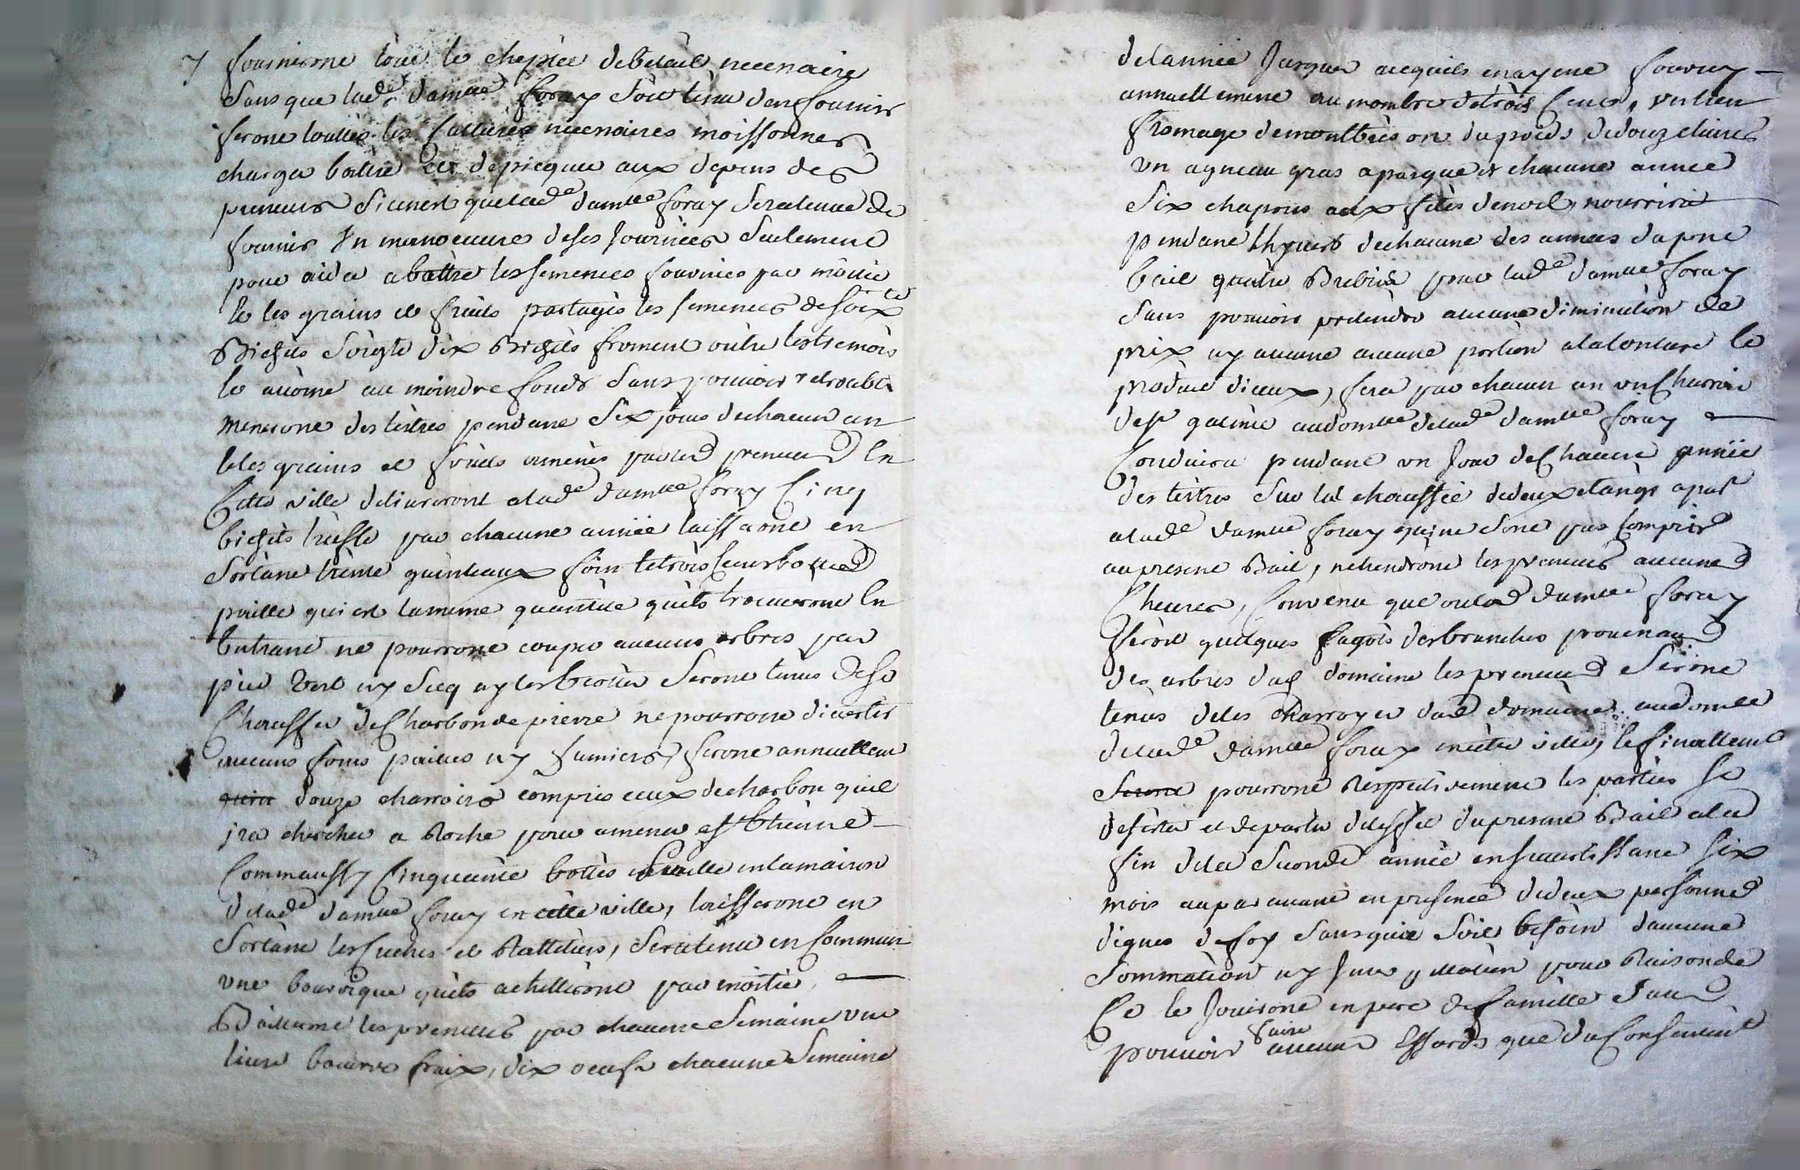 y fournirone toue le cheptée debétail nécenaire
sans que lad.e damlle foray soit tenue den fournir
ferone touttes les cultures nécenaires moissonner
charger battre et depicquer aux depens des
preneurs sicenest quelad.e damlle foray sera tenue de
fournir un manoeuvre deses journées seulement
pour aider abattre les semences fournies par moitié
et les grains et fruits partagés les semences de soix.te
Bichets soigle dix Bichets froment outre les tremois
le avoine au moindre fonds sans pouvoir retroubler
menerone des terres pendane six jours de chacun an
et les grains et fruits amenés par les preneurs en
Cette ville delivreront alad.e damlle foray Cinq
bichets trufle par chacune année laisserone en
sortane trente quinteaux foin et trois Cens bottes
paille qui est la meme quantité quils trouverone en
entrant ne pourrone couper aucuns arbres par
pied vert ny secq ny les brotter serone tenus de se
Chauffer de Charbon de pierre ne pourrone divertir
aucuns foins pailles ny fumiers, ferone annuellem.t
douze charrois compris ceux de charbon quil
ira chercher a Roche pour amener a s.t Etienne
Comme aussy Cinquante bottes paille en la maison
delad.e damlle foray en cette ville, laisserone en
sortane les Cuches et Ratteliers, sera tenu en Commun
une bourrique quils achetterone par moitié,
Baillerone les preneurs par chacune semaine une
livre beurre fraix, dix oeufs chacune semaine
delannée jusques acequils en ayene fourny
annuellemene au nombre de trois Cens, un lieu
fromage de montbrison du poids de douze livres
un agneau gras a pasques et chacune année
six chapons aux fetes de noel, nourrira
pendane lhyvert de chacune des années du presne
bail quatre Brebis pour lad.e damlle foray
sans pouvoir pretendre aucune diminution de
prix ny aucune aucune portion a la tonture et
produit diceux, fera par chacun an un Charroi
des.t galmier au domlle delad.e damlle foray
Conduira pendant un jour de Chacune année
des terres sur la chaussée de deux etangs apart.
a lad.e damlle foray qui ne sone pas Compris
au presene Bail, ne tiendrone les preneurs aucunes
Chevres, Convenu que ou lad.e damlle foray
feroit quelques fagots des branches provenant
des arbres dud. domaine les preneurs serone
tenus de les charroyer dud. domaine au domlle
delad.e damlle foray en cette ville, et finallement
serone pourrone Respectivement les parties se
desister et departir de leffet du presene Bail a la
fin de la seconde année en savertissane six
mois auparavant en presence de deux personnes
dignes de foy sans quil soit besoin daucune
sommation ny juri ymation pour Raison de
Ce et jouirone en pere de famille sans
pouvoir faire aucuns Essards que du Consentem.t